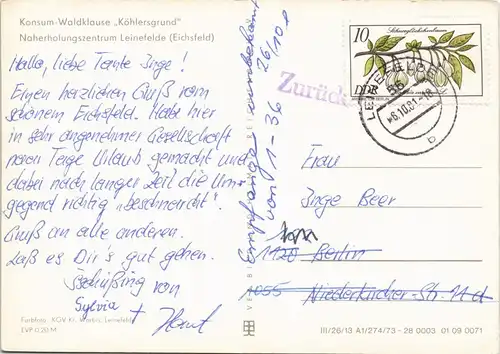 Konsum-Waldklause „Köhlersgrund"
Naherholungszentrum Leinefelde (Eichsfeld)
Hallo, liebe Tante Inge!
Einen herzlichen Gruß vom
schönen Eichsfeld. Habe hier
in sehr angenehmer Gesellschaft
paar Tage Urlaub gemacht und
dabei nach langer Zeit die Um-
gegend richtig „beschnarcht".
Gruß an alle anderen.
Laß es Dir's gut gehen.
Tschüßing von
Sylvia +
Farbfoto: KGV Kl. Leinefelde
EVP 0,20 M
Empfänger unbekannt
von 1-36 26/10
Zurück
10
DDR
LEINEFELDE
56
-6.10.81-18
b
Frau
Inge Beer
1120 Berlin
1055 Niederkircher-Str. 11d
III/26/13 A1/274/73 - 28 0003 01 09 0071